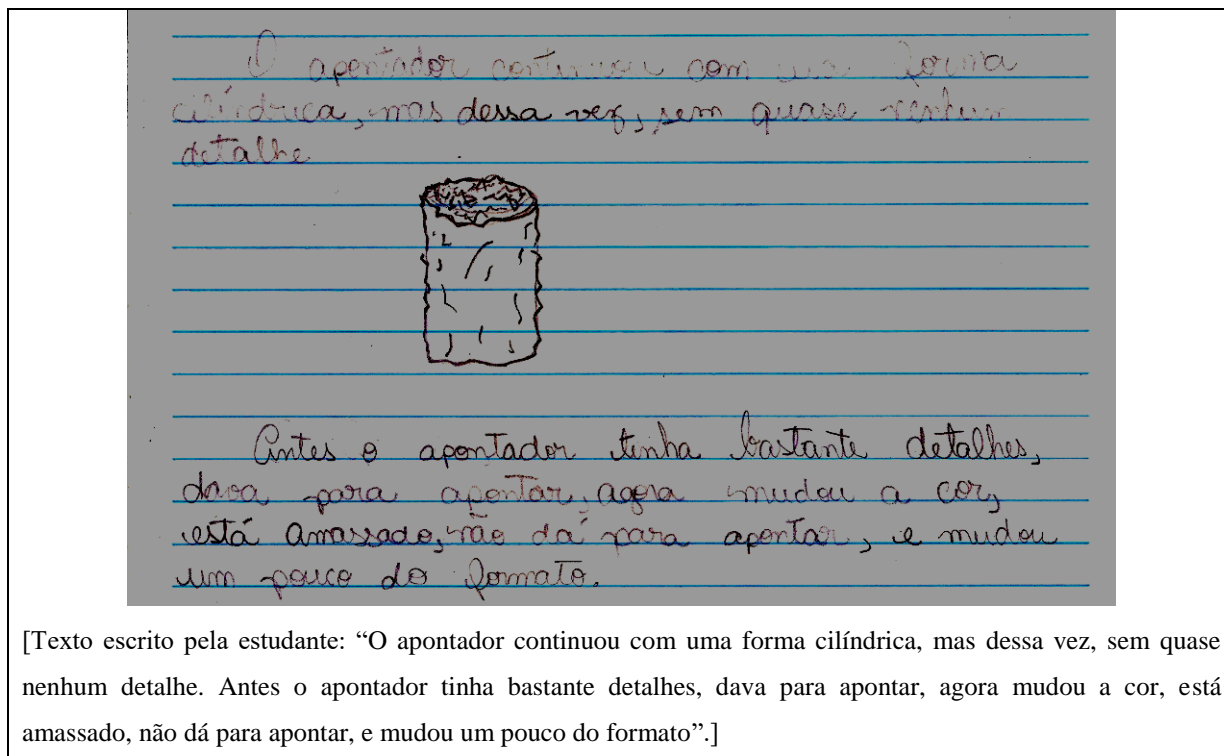 O apontador continuou com uma forma
cilíndrica, mas dessa vez, sem quase nenhum
detalhe
Antes o apontador tinha bastante detalhes,
dava para apontar, agora mudou a cor,
está amassado, não dá para apontar, e mudou
um pouco do formato.
[Texto escrito pela estudante: “O apontador continuou com uma forma cilíndrica, mas dessa vez, sem quase
nenhum detalhe. Antes o apontador tinha bastante detalhes, dava para apontar, agora mudou a cor, está
amassado, não dá para apontar, e mudou um pouco do formato”.]